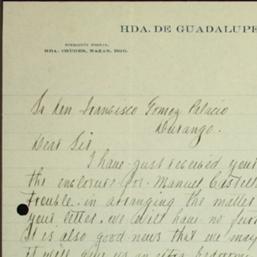 HDA. DE GUADALUPE
HDA. CRUCES, NAZAS, DGO.
Sr Don Francisco Gomez Palacio
Durango.
Dear Sir,
I have just received your
the enclosure for Manuel Castell
trouble in arranging the matter
your letter. we will have no furt
It is also good news that we may